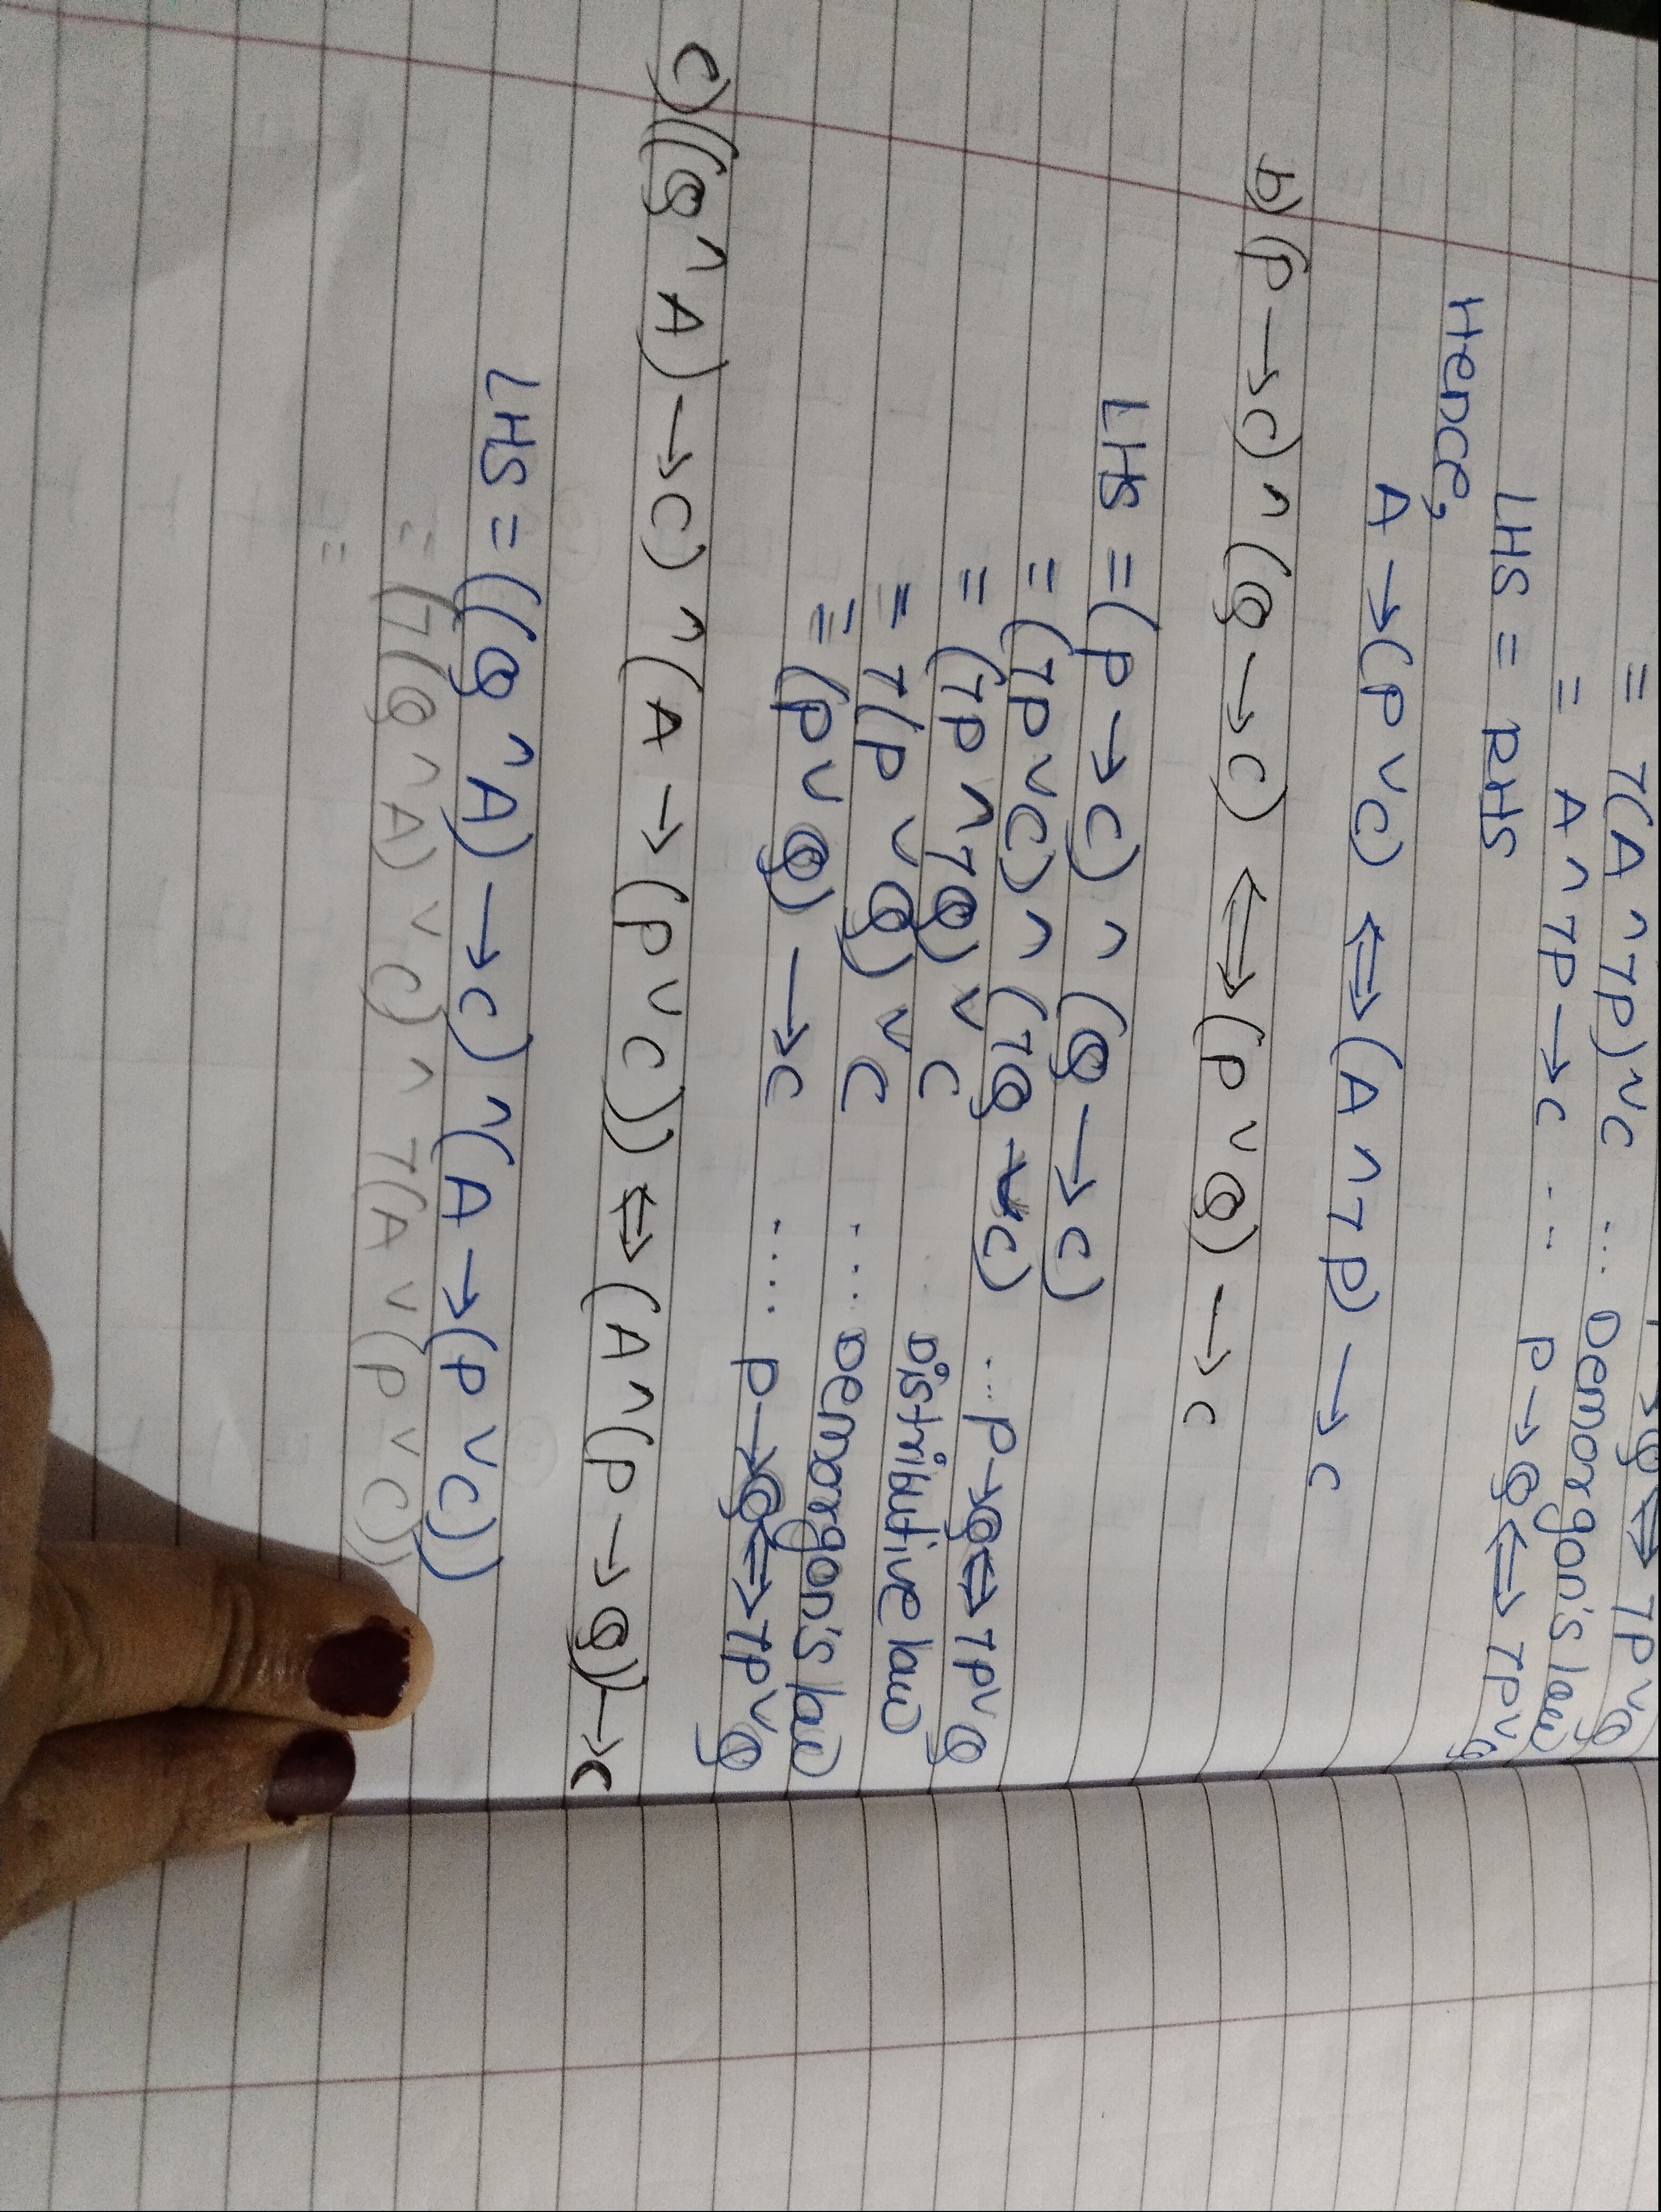 = ¬(A ∧ ¬P) ∨ C ... Demorgan's law
= A ∧ ¬P → C ... P → Q ⇔ ¬P ∨ Q
LHS = RHS
Hence,
A → (P ∨ C) ⇔ (A ∧ ¬P) → C
b) (P → C) ∧ (Q → C) ⇔ (P ∨ Q) → C
LHS = (P → C) ∧ (Q → C)
= (¬P ∨ C) ∧ (¬Q ∨ C) ... P → Q ⇔ ¬P ∨ Q
= (¬P ∧ ¬Q) ∨ C ... Distributive law
= ¬(P ∨ Q) ∨ C ... Demorgan's law
= (P ∨ Q) → C .... P → Q ⇔ ¬P ∨ Q
c) ((Q ∧ A) → C) ∧ (A → (P ∨ C)) ⇔ (A ∧ (P → Q)) → C
LHS = ((Q ∧ A) → C) ∧ (A → (P ∨ C))
= (¬(Q ∧ A) ∨ C) ∧ ¬(A ∨ (P ∨ C))
=